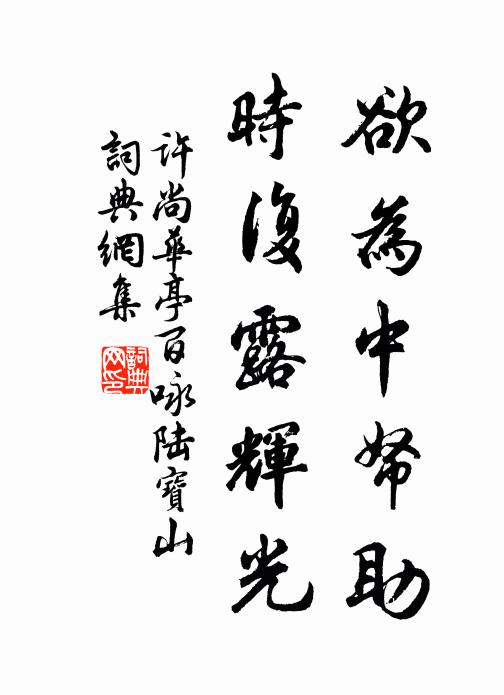 欲為中帑助
時復露輝光
許尚華亭百咏陸寶山
詞典網集
詞典
网印